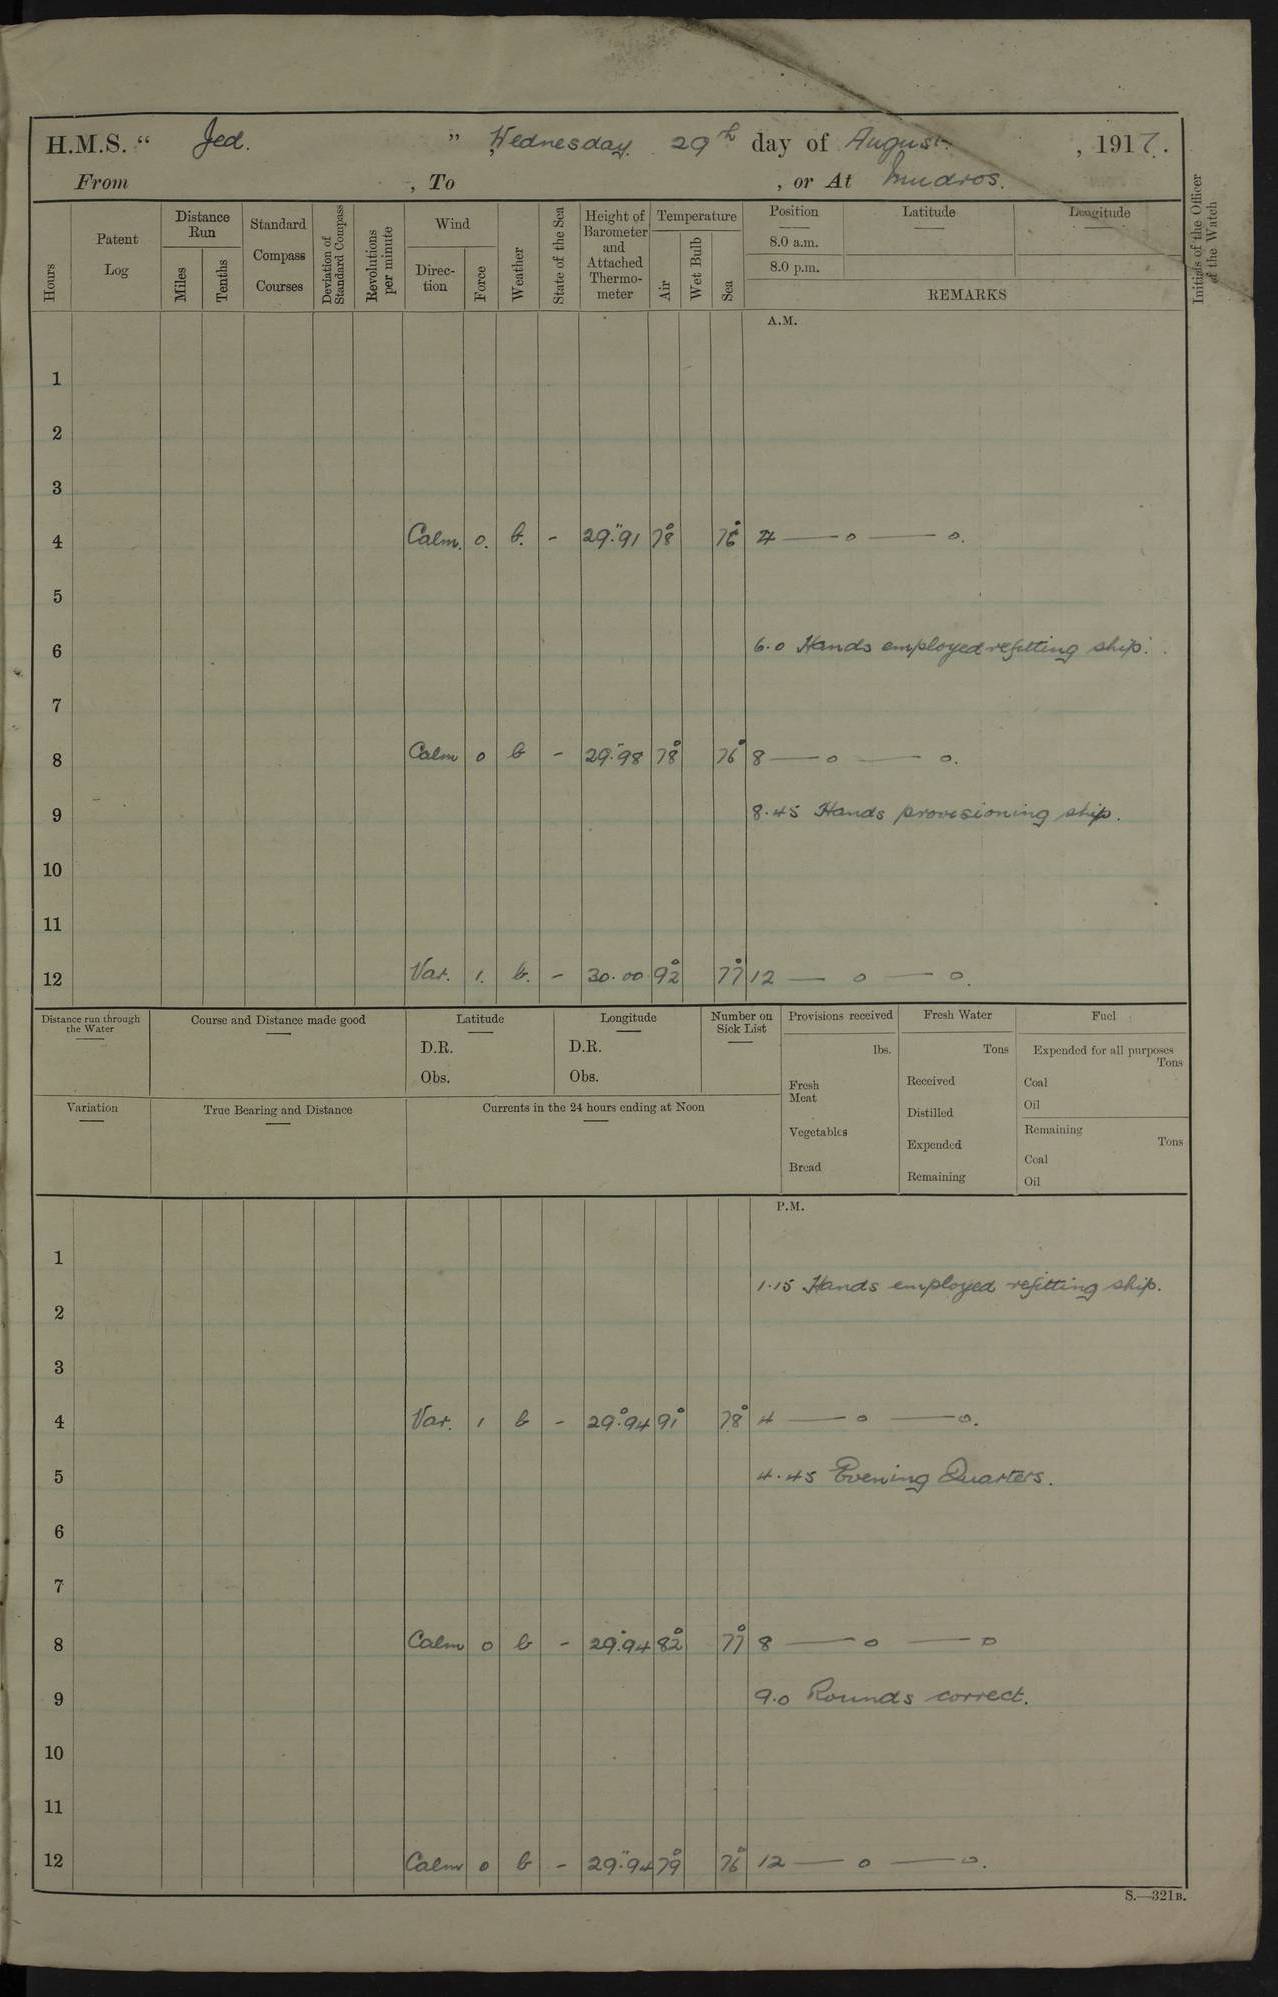 H.M.S. “ Jed. ” , Wednesday. 29th day of August. , 1917.
From , To , or At Mudros.
Hours
Patent Log
Distance Run
Miles
Tenths
Standard Compass Courses
Deviation of Standard Compass
Revolutions per minute
Wind
Direc-tion
Force
Weather
State of the Sea
Height of Barometer and Attached Thermo-meter
Temperature
Air
Wet Bulb
Sea
Position
8.0 a.m.
8.0 p.m.
Latitude
Longitude
REMARKS
Initials of the Officer of the Watch
A.M.
1
2
3
4 Calm. 0. b. - 29".91 78° 76° 4 — o — o.
5
6 6.0 Hands employed refitting ship.
7
8 Calm 0 b - 29".98 78° 76° 8 — o — o.
9 8.45 Hands provisioning ship.
10
11
12 Var. 1. b. - 30.00 92° 77° 12 — o — o.
Distance run through the Water
Course and Distance made good
Latitude
D.R.
Obs.
Longitude
D.R.
Obs.
Number on Sick List
Provisions received
lbs.
Fresh Meat
Vegetables
Bread
Fresh Water
Tons
Received
Distilled
Expended
Remaining
Fuel
Expended for all purposes
Tons
Coal
Oil
Remaining
Tons
Coal
Oil
Variation
True Bearing and Distance
Currents in the 24 hours ending at Noon
P.M.
1
1.15 Hands employed refitting ship.
2
3
4 Var. 1 b - 29°.94 91° 78° 4 — o — o.
5 4.45 Evening Quarters.
6
7
8 Calm 0 b - 29".94 82° 77° 8 — o — o
9 9.0 Rounds correct.
10
11
12 Calm 0 b - 29".94 79° 76° 12 — o — o.
S.—321B.